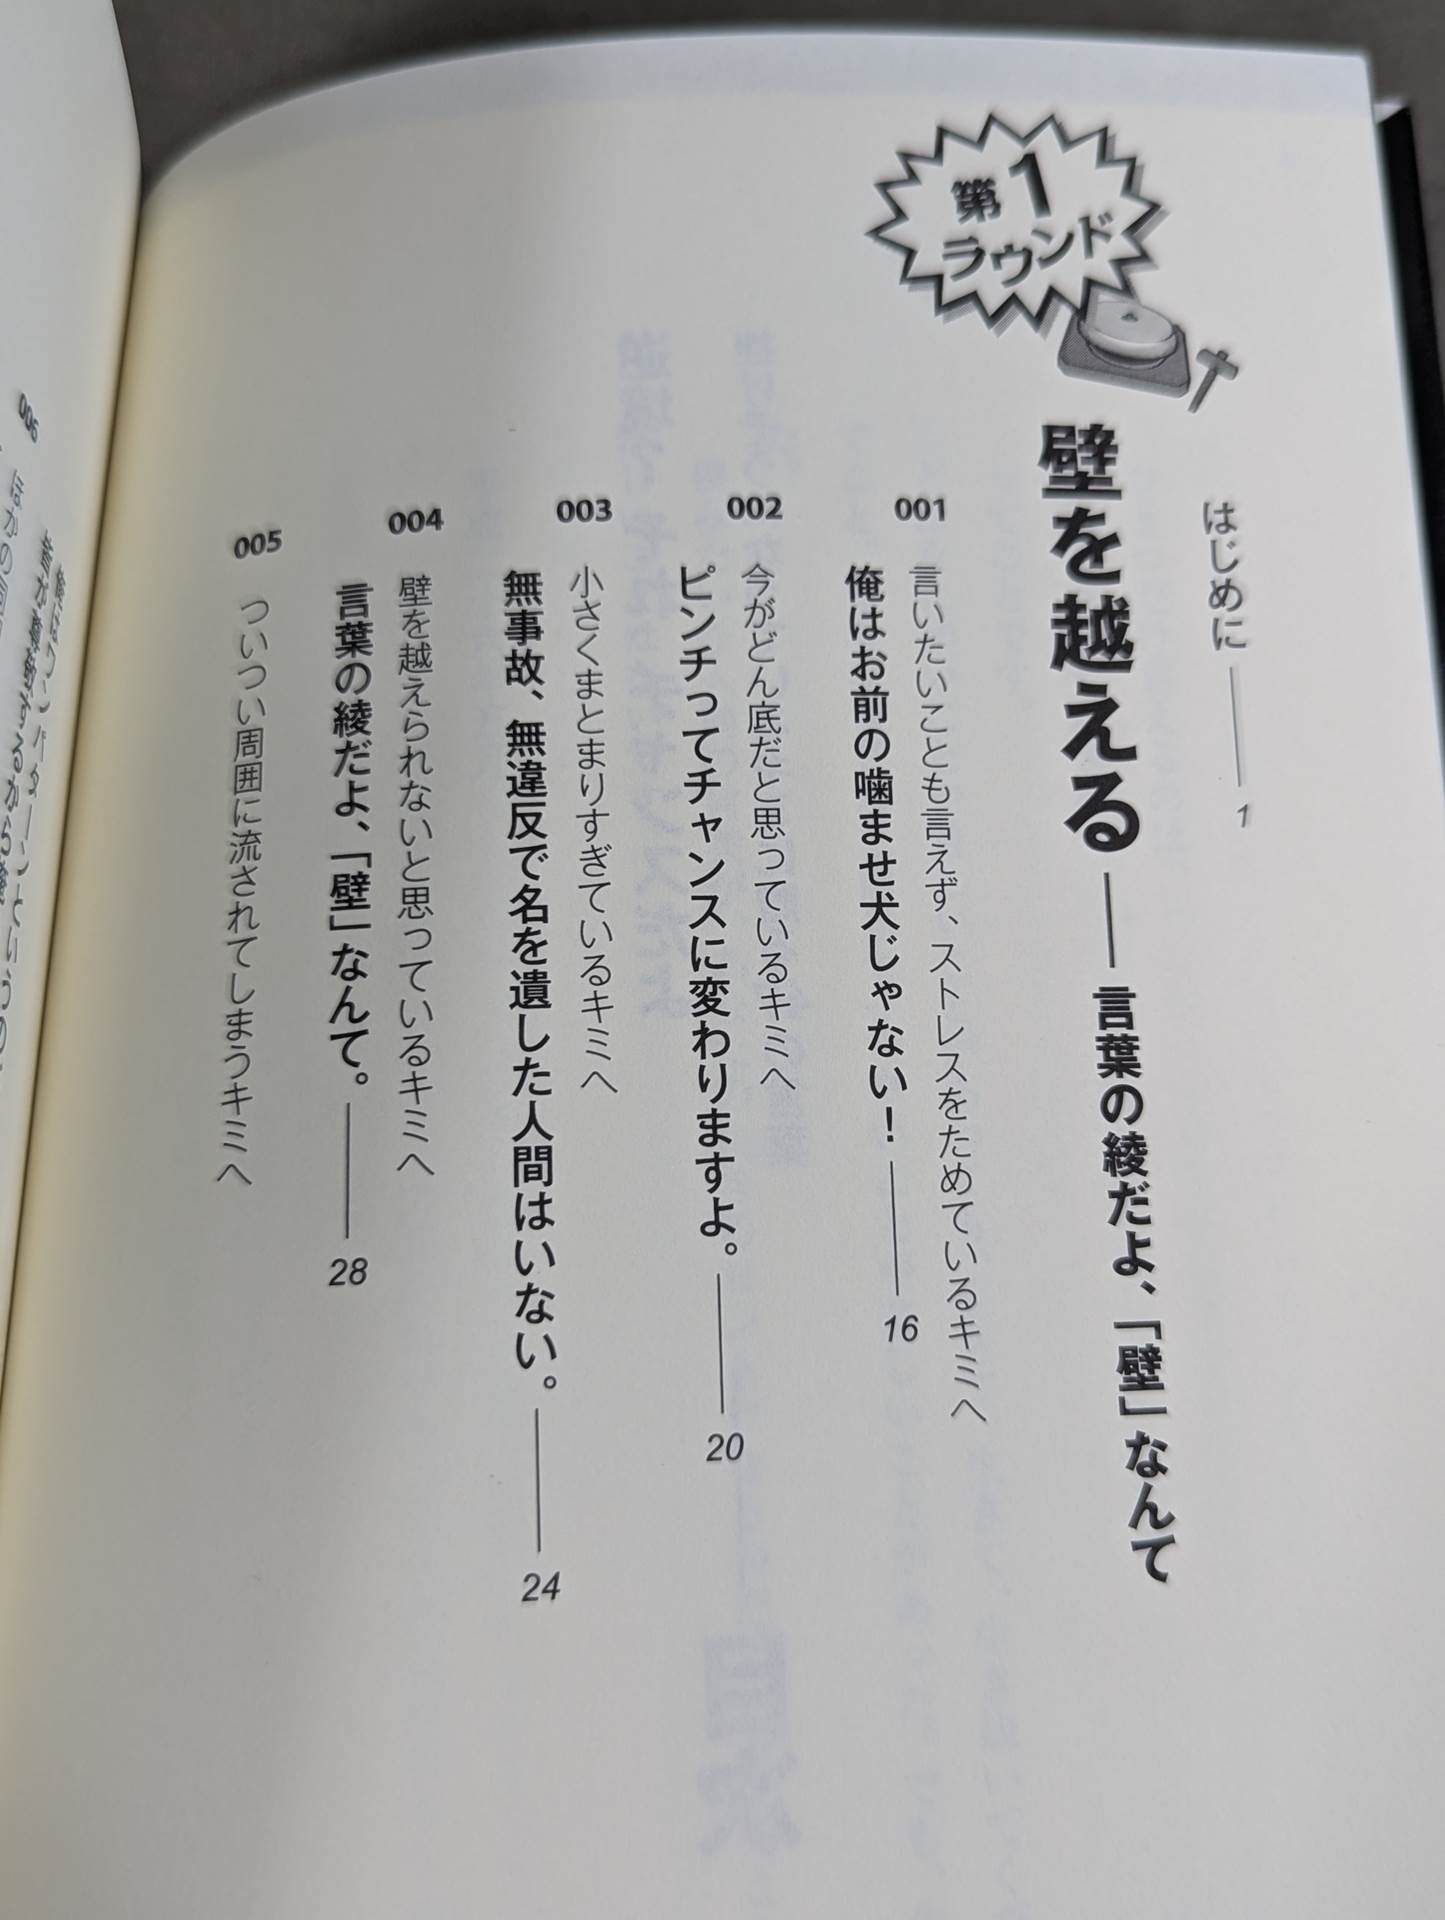 はじめに――1
第1
ラウンド
壁を越える――言葉の綾だよ、「壁」なんて
001
言いたいことも言えず、ストレスをためているキミへ
俺はお前の噛ませ犬じゃない！――16
002
今がどん底だと思っているキミへ
ピンチってチャンスに変わりますよ。――20
003
小さくまとまりすぎているキミへ
無事故、無違反で名を遺した人間はいない。――24
004
壁を越えられないと思っているキミへ
言葉の綾だよ、「壁」なんて。――28
005
ついつい周囲に流されてしまうキミへ
006